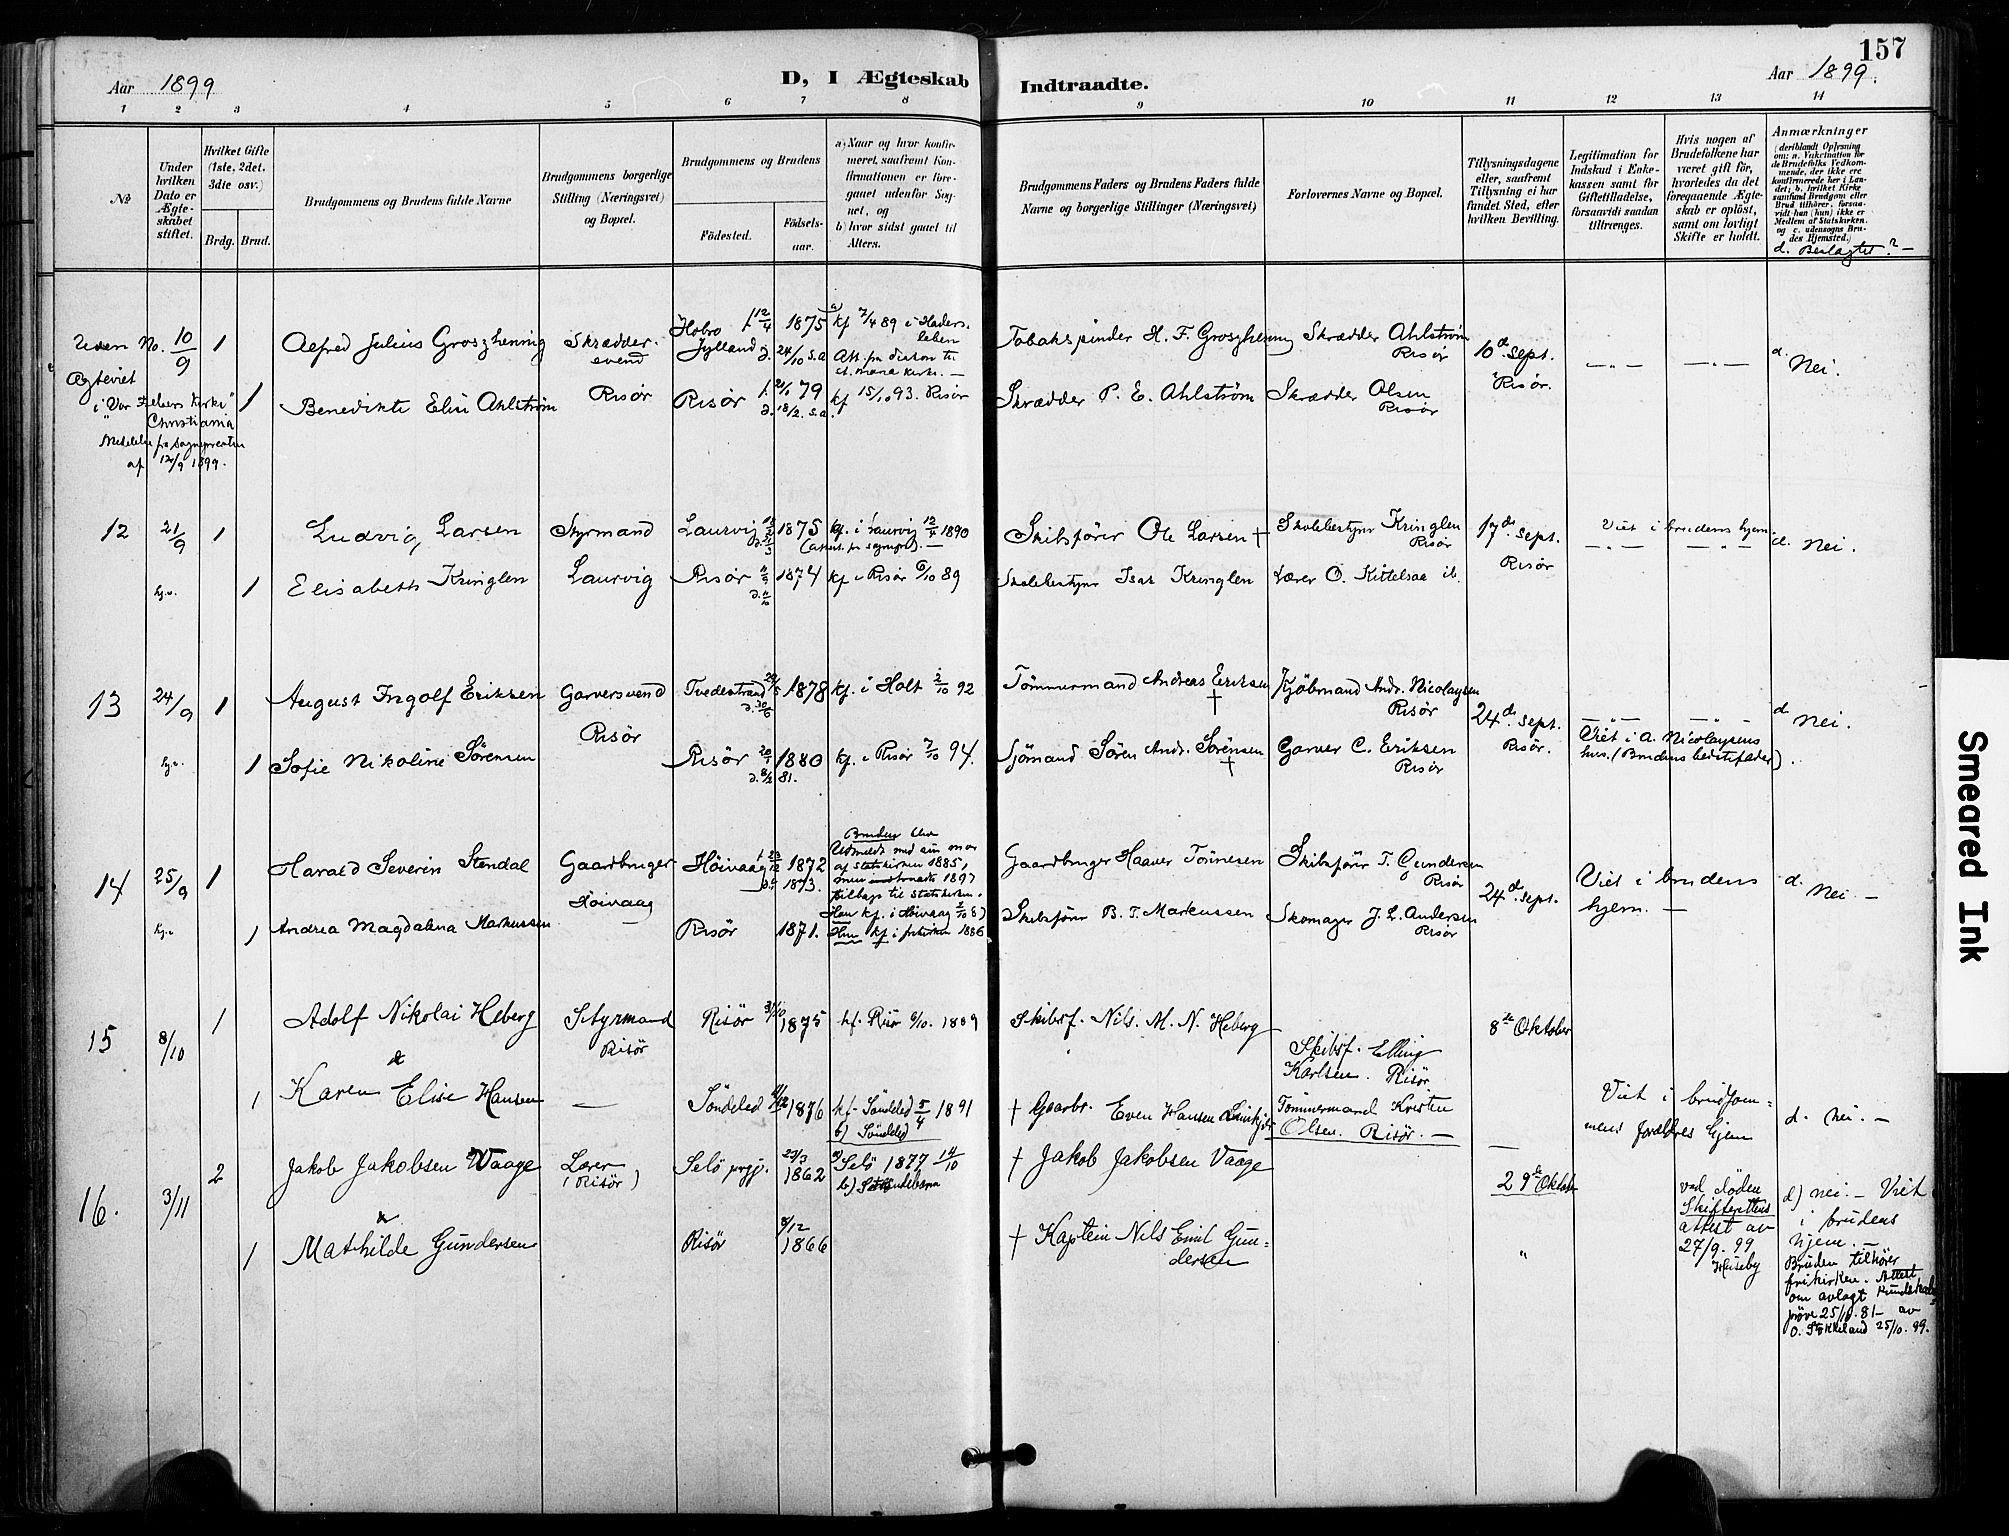 157
Aar 1899
D, I Ægteskab Indtraadte.
Aar 1899.
1 2 3 4 5 6 7 8 9 10 11 12 13 14
No
Under hvilken Dato er Ægte-skabet stiftet.
Hvilket Gifte (1ste, 2det, 3die osv.)
Brdg. Brud.
Brudgommens og Brudens fulde Navne
Brudgommens borgerlige Stilling (Næringsvei) og Bopæl.
Brudgommens og Brudens
Födested.
Födsels-aar.
a) Naar og hvor konfir-meret, saafremt Kon-firmationen er fore-gaaet udenför Sog-net, og
b) hvor sidst gaaet til Alters.
Brudgommens Faders og Brudens Faders fulde Navne og borgerlige Stillinger (Næringsvei)
Forlovernes Navne og Bopæl.
Tillysningsdagene eller, saafremt Tillysning ei har fundet Sted, efter hvilken Bevilling.
Legitimation for Indskud i Enke-kassen samt for Giftetilladelse, forsaavidt saadan tiltrænges.
Hvis nogen af Brudefolkene har været gift för, hvorledes da det foregaaende Ægte-skab er oplöst, samt om lovligt Skifte er holdt.
Anmærkninger (deriblandt Oplysning om: a. Vakcination for de Brudefolks Vedkom-mende, der ikke ere konfirmerede her i Lan-det; b. hvilket Kirke samfund Brudgom eller Brud tilhörer, forsaa-vidt han (hun) ikke er Medlem af Statskirken. og c. udensogns Bru-des Hjemsted.)
d. Beslagtet? -
Uden No. 10/9 1 Alfred Julius Groszhennig Skrædder-svend Risør Hobro Jylland f. 12/4 1875 d. 24/10 s.a a kf 7/4 89 i Haders-leben
Att. fra diakon til St. maria kirke. -
Tobakspinder H. F. Groszhennig Skrædder Ahlström Risør 10d. sept. Risør. d. Nei.
Ægteviet i "Vor Frelsers Kirke" Christiania
Meddelelse fra Sognepræsten af 12/9 1899.
1 Benedikte Elise Ahlström Risør f. 21/1 79 d. 18/2. s.a. kf 15/10 93. Risør
Skrædder P. E. Ahlström Skrædder Olsen Risør
12 21/9 1 Ludvig Larsen Styrmand Laurvig Laurvig 1875 kf. i Laurvig 12/4 1890
Skibsfører Ole Larsen † Skolebestyrer Kringlen Risør 17de sept. Risør Viet i brudens hjem. d. Nei.
hj.v. 1 Elisabeth Kringlen Risør 1874 kf i Risør 6/10 89
Skolebestyrer Isak Kringlen Lærer O. Kittelsaa ib.
13 24/9 1 August Ingolf Eriksen Garversvend Risør Tvedestrand 29/5 d. 30/6 1878 kf. i Holt 2/10 92
Tömmermand Andreas Eriksen † Kjöbmand Andr. Nicolaysen Risør 24de. sept. Risør. d Nei.
Viet i A. Nicolaysens hus. (Brudens bedstefader).
hj.v. 1 Sofie Nikoline Sörensen Risør 1880 81. kf. i Risør 7/10 94.
Sjömand Sören Andr. Sörensen † Garver C. Eriksen Risør
Bruden
Udmeldt med sin mor af statskirken 1885, men 1897 tilbage til statskirken.
14 25/9 1 Harald Severin Stendal Gaardbruger Höivaag Höivaag 1872 1873. Han kf. i Höivaag 2/10 87
Gaardbruger Haaver Tönnesen Skibsförer T. Gundersen Risør 24de. sept. Viet i brudens hjem. - d. Nei. -
hj.v 1 Andrea Magdalena Markussen Risør 1871. Hun kf. i frikirken 1886
Skibsförer B. T. Markussen Skomager J. L. Andersen Risør
15 8/10 1 Adolf Nikolai Heberg Styrmand Risör Risör 31/10 1875 kf. Risör 6/10. 1889
Skibsf. Nils. M. N. Heberg Skibsf. Elling Karlsen. Risör 8de Oktober
&
1 Karen Elise Hansen — Söndeled 1876 kf. Söndeled 5/4 1891
b) Söndeled
† Gaarbr. Even Hansen Tömmermand Kristen Olsen. Risör. — Viet i brudgom=mens forældres hjem d. nei. -
16. 3/11 2 Jakob Jakobsen Waage Lærer (Risör) Selö prgj. 23/3 1862 a) Selö 1877 14/10
b)
† Jakob Jakobsen Vaage 29de Oktober
ved döden Skifterettens attest av 27/9. 99 Huseby
d) nei. - Viet i brudens hjem. -
Bruden tilhörer frikirken. Attest om avlagt Kundskabs pröve 25/10. 81 - av O. Stökkeland 25/10. 99.
&
1 Mathilde Gundersen Risör 8/12 1866
† Kaptein Nils Emil Gun=dersen "
Smeared Ink